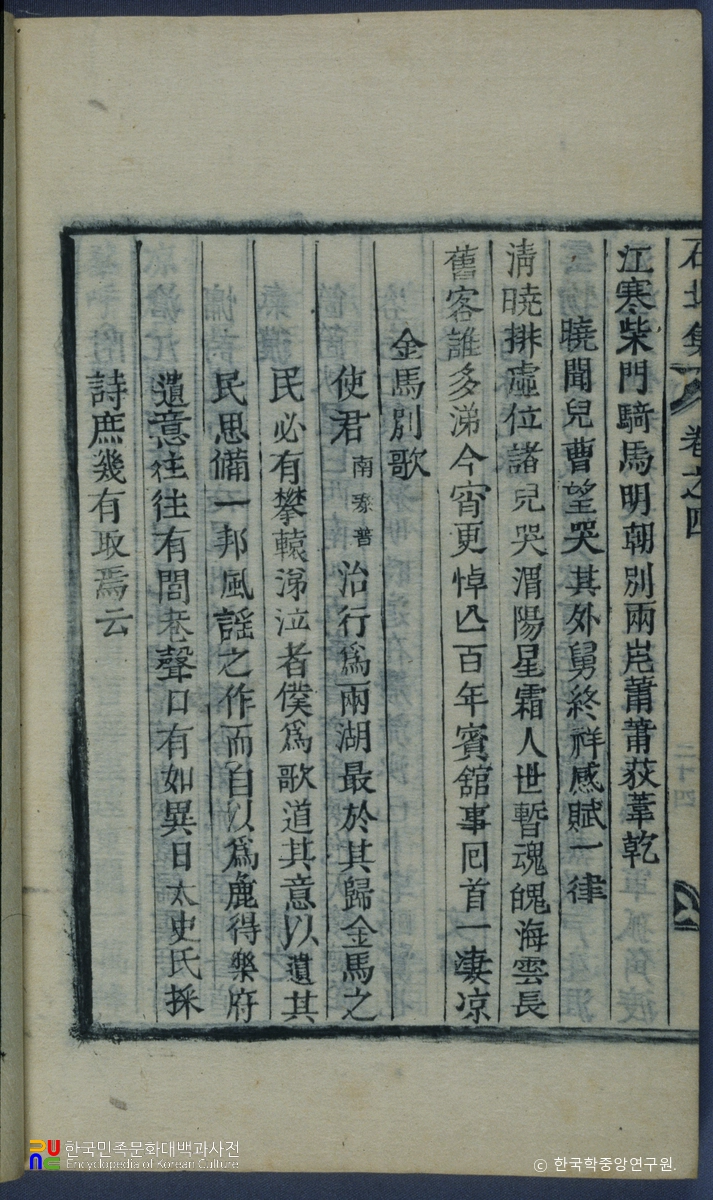 石北集 卷之四
江寒柴門騎馬明朝別兩岸蕭蕭荻葦乾
曉聞兒曹望哭其外舅終祥感賦一律
淸曉排虛位諸兒哭渭陽星霜人世暫魂魄海雲長
舊客誰多涕今宵更悼亾百年賓舘事回首一凄凉
金馬別歌
使君南泰普治行爲兩湖最於其歸金馬之
民必有攀轅涕泣者僕爲歌道其意以遺其
民思備一邦風謠之作而自以爲麁得樂府
遺意往往有閭巷聲口有如異日太史氏採
詩庶幾有取焉云
한국민족문화대백과사전
Encyclopedia of Korean Culture
ⓒ 한국학중앙연구원.